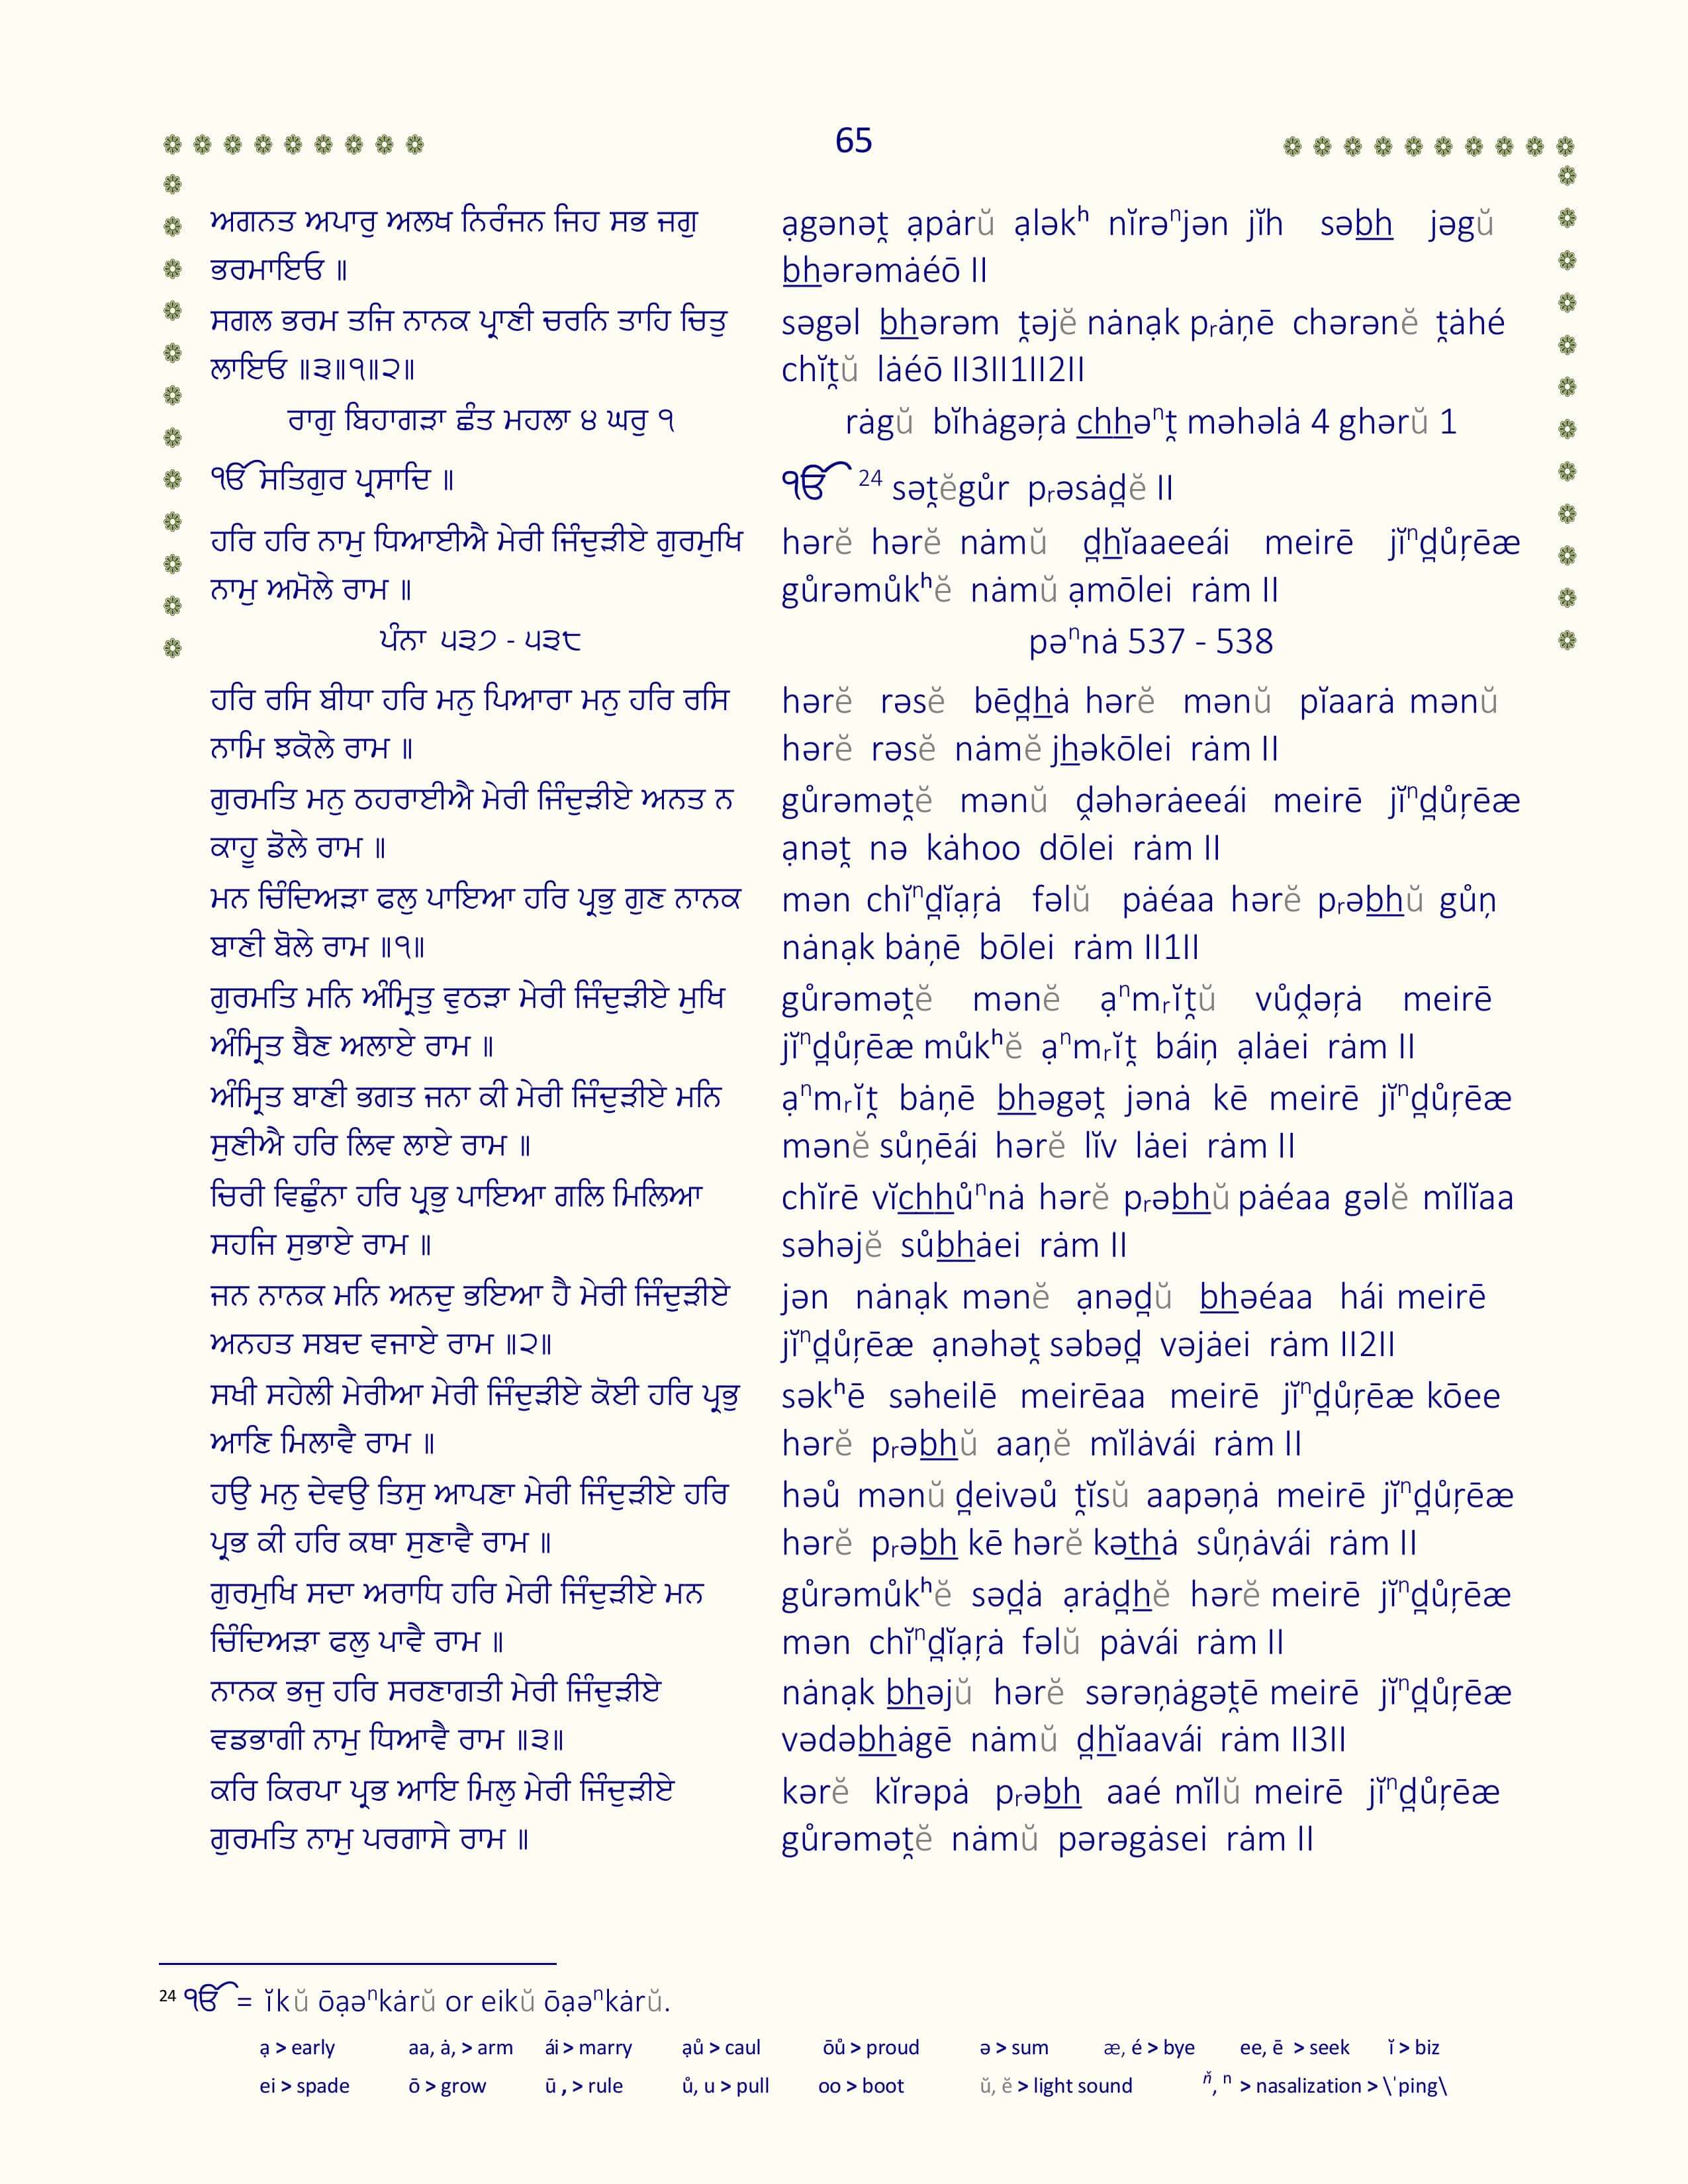 65
ਅਗਨਤ ਅਪਾਰੁ ਅਲਖ ਨਿਰੰਜਨ ਜਿਹ ਸਭ ਜਗੁ
ਭਰਮਾਇਓ ॥
ਸਗਲ ਭਰਮ ਤਜਿ ਨਾਨਕ ਪ੍ਰਾਣੀ ਚਰਨਿ ਤਾਹਿ ਚਿਤੁ
ਲਾਇਓ ॥੩॥੧॥੨॥
ਰਾਗੁ ਬਿਹਾਗੜਾ ਛੰਤ ਮਹਲਾ ੪ ਘਰੁ ੧
ੴ ਸਤਿਗੁਰ ਪ੍ਰਸਾਦਿ ॥
ਹਰਿ ਹਰਿ ਨਾਮੁ ਧਿਆਈਐ ਮੇਰੀ ਜਿੰਦੁੜੀਏ ਗੁਰਮੁਖਿ
ਨਾਮੁ ਅਮੋਲੇ ਰਾਮ ॥
ਪੰਨਾ ੫੩੭ - ੫੩੮
ਹਰਿ ਰਸਿ ਬੀਧਾ ਹਰਿ ਮਨੁ ਪਿਆਰਾ ਮਨੁ ਹਰਿ ਰਸਿ
ਨਾਮਿ ਝਕੋਲੇ ਰਾਮ ॥
ਗੁਰਮਤਿ ਮਨੁ ਠਹਰਾਈਐ ਮੇਰੀ ਜਿੰਦੁੜੀਏ ਅਨਤ ਨ
ਕਾਹੂ ਡੋਲੇ ਰਾਮ ॥
ਮਨ ਚਿੰਦਿਅੜਾ ਫਲੁ ਪਾਇਆ ਹਰਿ ਪ੍ਰਭੁ ਗੁਣ ਨਾਨਕ
ਬਾਣੀ ਬੋਲੇ ਰਾਮ ॥੧॥
ਗੁਰਮਤਿ ਮਨਿ ਅੰਮ੍ਰਿਤੁ ਵੁਠੜਾ ਮੇਰੀ ਜਿੰਦੁੜੀਏ ਮੁਖਿ
ਅੰਮ੍ਰਿਤ ਬੈਣ ਅਲਾਏ ਰਾਮ ॥
ਅੰਮ੍ਰਿਤ ਬਾਣੀ ਭਗਤ ਜਨਾ ਕੀ ਮੇਰੀ ਜਿੰਦੁੜੀਏ ਮਨਿ
ਸੁਣੀਐ ਹਰਿ ਲਿਵ ਲਾਏ ਰਾਮ ॥
ਚਿਰੀ ਵਿਛੁੰਨਾ ਹਰਿ ਪ੍ਰਭੁ ਪਾਇਆ ਗਲਿ ਮਿਲਿਆ
ਸਹਜਿ ਸੁਭਾਏ ਰਾਮ ॥
ਜਨ ਨਾਨਕ ਮਨਿ ਅਨਦੁ ਭਇਆ ਹੈ ਮੇਰੀ ਜਿੰਦੁੜੀਏ
ਅਨਹਤ ਸਬਦ ਵਜਾਏ ਰਾਮ ॥੨॥
ਸਖੀ ਸਹੇਲੀ ਮੇਰੀਆ ਮੇਰੀ ਜਿੰਦੁੜੀਏ ਕੋਈ ਹਰਿ ਪ੍ਰਭੁ
ਆਣਿ ਮਿਲਾਵੈ ਰਾਮ ॥
ਹਉ ਮਨੁ ਦੇਵਉ ਤਿਸੁ ਆਪਣਾ ਮੇਰੀ ਜਿੰਦੁੜੀਏ ਹਰਿ
ਪ੍ਰਭ ਕੀ ਹਰਿ ਕਥਾ ਸੁਣਾਵੈ ਰਾਮ ॥
ਗੁਰਮੁਖਿ ਸਦਾ ਅਰਾਧਿ ਹਰਿ ਮੇਰੀ ਜਿੰਦੁੜੀਏ ਮਨ
ਚਿੰਦਿਅੜਾ ਫਲੁ ਪਾਵੈ ਰਾਮ ॥
ਨਾਨਕ ਭਜੁ ਹਰਿ ਸਰਣਾਗਤੀ ਮੇਰੀ ਜਿੰਦੁੜੀਏ
ਵਡਭਾਗੀ ਨਾਮੁ ਧਿਆਵੈ ਰਾਮ ॥੩॥
ਕਰਿ ਕਿਰਪਾ ਪ੍ਰਭ ਆਇ ਮਿਲੁ ਮੇਰੀ ਜਿੰਦੁੜੀਏ
ਗੁਰਮਤਿ ਨਾਮੁ ਪਰਗਾਸੇ ਰਾਮ ॥
ạgənət̯ ạpȧrŭ ạləkʰ nĭrəⁿjən jĭh səbh jəgŭ
bhərəmȧéō II
səgəl bhərəm t̯əjĕ nȧnạk pᵣȧṇē chərənĕ t̯ȧhé
chĭt̯ŭ lȧéō II3II1II2II
rȧgŭ bĭhȧgəŗȧ chhəⁿt̯ məhəlȧ 4 ghərŭ 1
ੴ 24 sət̯ĕgůr pᵣəsȧd̯ĕ II
hərĕ hərĕ nȧmŭ d̯hĭaaeeái meirē jĭⁿd̯ůŗēæ
gůrəmůkʰĕ nȧmŭ ạmōlei rȧm II
pəⁿnȧ 537 - 538
hərĕ rəsĕ bēd̯hȧ hərĕ mənŭ pĭaarȧ mənŭ
hərĕ rəsĕ nȧmĕ jhəkōlei rȧm II
gůrəmət̯ĕ mənŭ ḓəhərȧeeái meirē jĭⁿd̯ůŗēæ
ạnət̯ nə kȧhoo dōlei rȧm II
mən chĭⁿd̯ĭạŗȧ fəlŭ pȧéaa hərĕ pᵣəbhŭ gůņ
nȧnạk bȧņē bōlei rȧm II1II
gůrəmət̯ĕ mənĕ ạⁿmᵣĭt̯ŭ vůḓəŗȧ meirē
jĭⁿd̯ůŗēæ můkʰĕ ạⁿmᵣĭt̯ báiņ ạlȧei rȧm II
ạⁿmᵣĭt̯ bȧņē bhəgət̯ jənȧ kē meirē jĭⁿd̯ůŗēæ
mənĕ sůņēái hərĕ lĭv lȧei rȧm II
chĭrē vĭchhůⁿnȧ hərĕ pᵣəbhŭ pȧéaa gəlĕ mĭlĭaa
səhəjĕ sůbhȧei rȧm II
jən nȧnạk mənĕ ạnəd̯ŭ bhəéaa hái meirē
jĭⁿd̯ůŗēæ ạnəhət̯ səbəd̯ vəjȧei rȧm II2II
səkʰē səheilē meirēaa meirē jĭⁿd̯ůŗēæ kōee
hərĕ pᵣəbhŭ aaņĕ mĭlȧvái rȧm II
həů mənŭ d̯eivəů t̯ĭsŭ aapəņȧ meirē jĭⁿd̯ůŗēæ
hərĕ pᵣəbh kē hərĕ kəthȧ sůņȧvái rȧm II
gůrəmůkʰĕ səd̯ȧ ạrȧd̯hĕ hərĕ meirē jĭⁿd̯ůŗēæ
mən chĭⁿd̯ĭạŗȧ fəlŭ pȧvái rȧm II
nȧnạk bhəjŭ hərĕ sərəņȧgət̯ē meirē jĭⁿd̯ůŗēæ
vədəbhȧgē nȧmŭ d̯hĭaavái rȧm II3II
kərĕ kĭrəpȧ pᵣəbh aaé mĭlŭ meirē jĭⁿd̯ůŗēæ
gůrəmət̯ĕ nȧmŭ pərəgȧsei rȧm II
24 ੴ = ĭkŭ ōạəⁿkȧrŭ or eikŭ ōạəⁿkȧrŭ.
ạ > early aa, ȧ, > arm ái > marry ạů > caul ōů > proud ə > sum æ, é > bye ee, ē > seek ĭ > biz
ei > spade ō > grow ū , > rule ů, u > pull oo > boot ŭ, ĕ > light sound ň, ⁿ > nasalization > \ˈping\